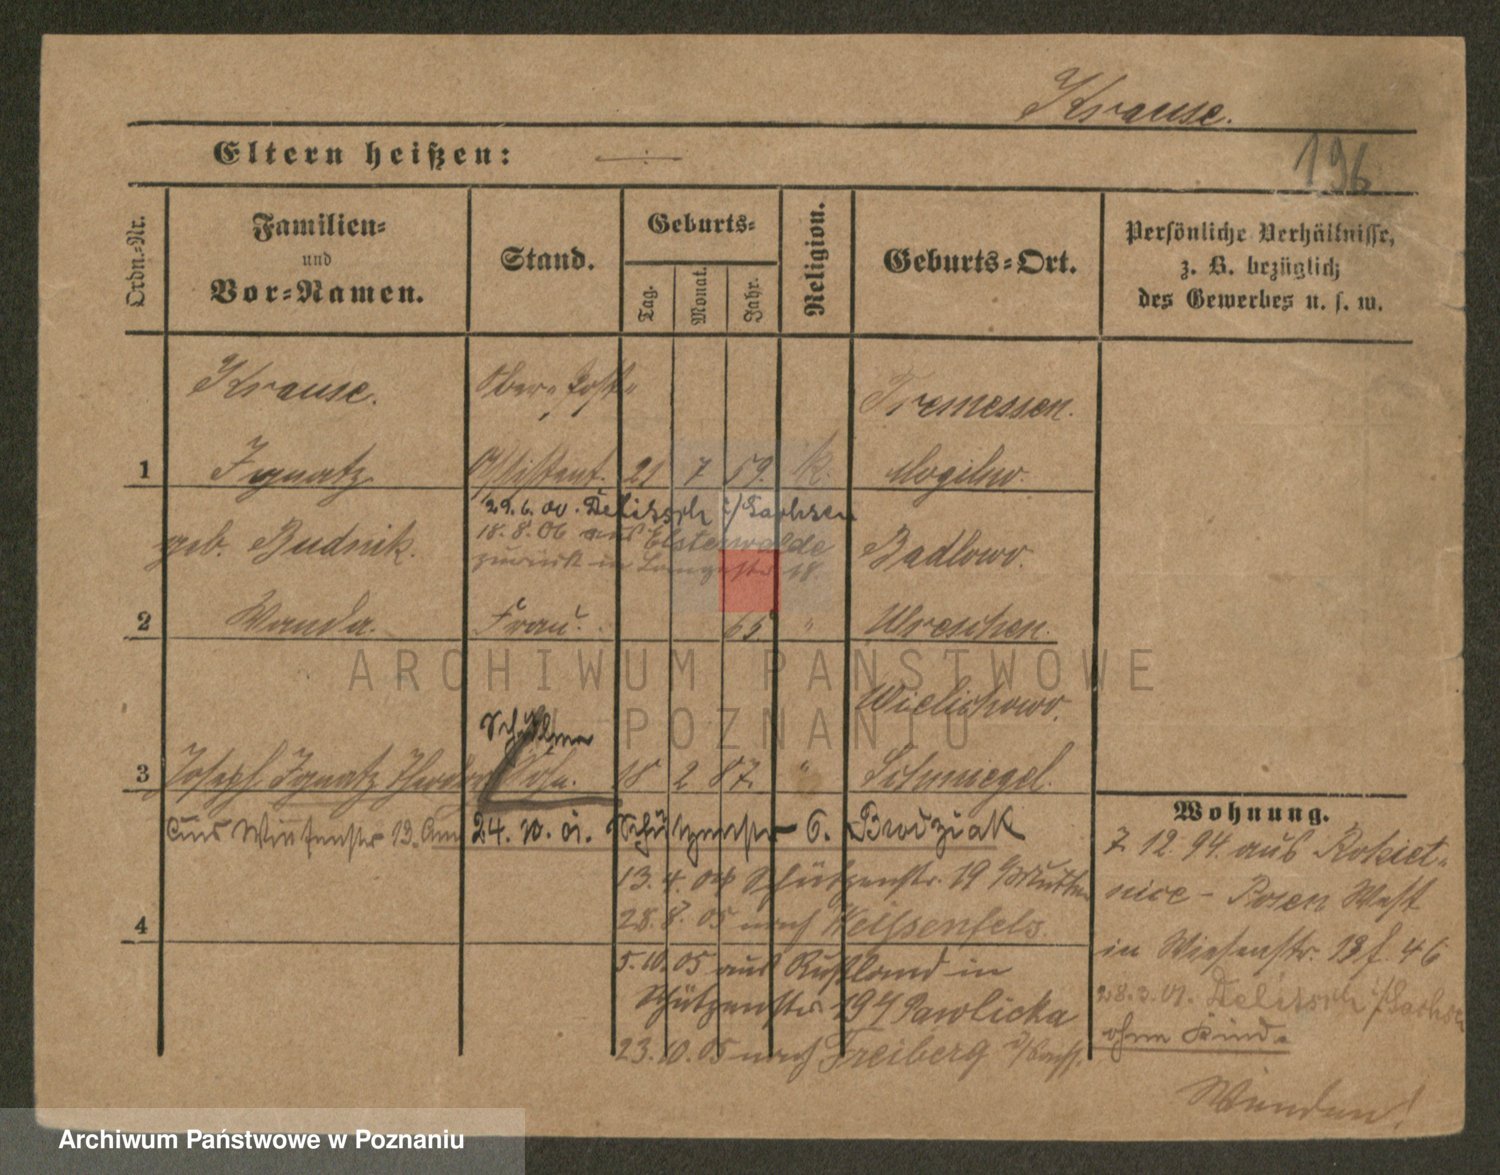 Krause.
196
Eltern heißen:
Ordn.-Nr.
Familien-
und
Vor-Namen.
Stand.
Geburts-
Tag.
Monat.
Jahr.
Religion.
Geburts-Ort.
Persönliche Verhältnisse,
z. B. bezüglich
des Gewerbes u. s. w.
Krause.
Ober-Post-
Tremessen.
1 Ignatz Assistent. 21 7 59. k. Mogilno.
29.6.00. Delitzsch i/Sachsen
geb. Budnik.
18.8.06 aus Elsterwalde
zurück in Langestr. 18.
Badlowo.
2 Wanda. Frau. 65. " Wreschen.
Wielichowo.
Schüler
3 Joseph Ignatz Theodor Sohn. 18 2 87. " Schmiegel.
Aus Wiesenstr 13. 24. 10. 01. Schützenstr 6. Brodziak
13.4.04 Schützenstr. 19 Mutter
4
28.8.05 nach Weissenfels.
5.10.05 aus Rußland in
Schützenstr 19 Pawlicka
23.10.05 nach Freiberg i/Sachs.
Wohnung.
7. 12. 94. aus Rokiet-
nice - Posen West
in Wiesenstr. 13 f. 46
28.3.01. Delitzsch i/Sachsen
ohne Kind.
Wenden!
ARCHIWUM PAŃSTWOWE
W POZNANIU
Archiwum Państwowe w Poznaniu